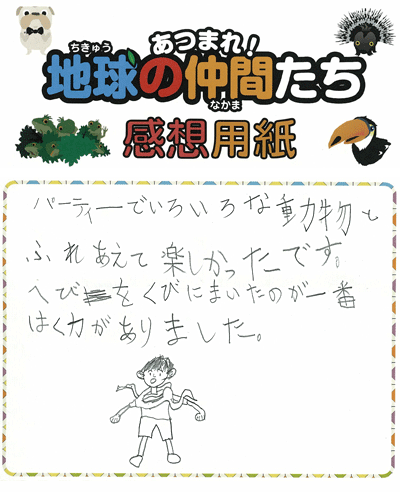 あつまれ!
ちきゅう
地球の仲間たち
なかま
感想用紙
パーティーでいろいろな動物と
ふれあえて楽しかったです。
へびをくびにまいたのが一番
はく力がありました。